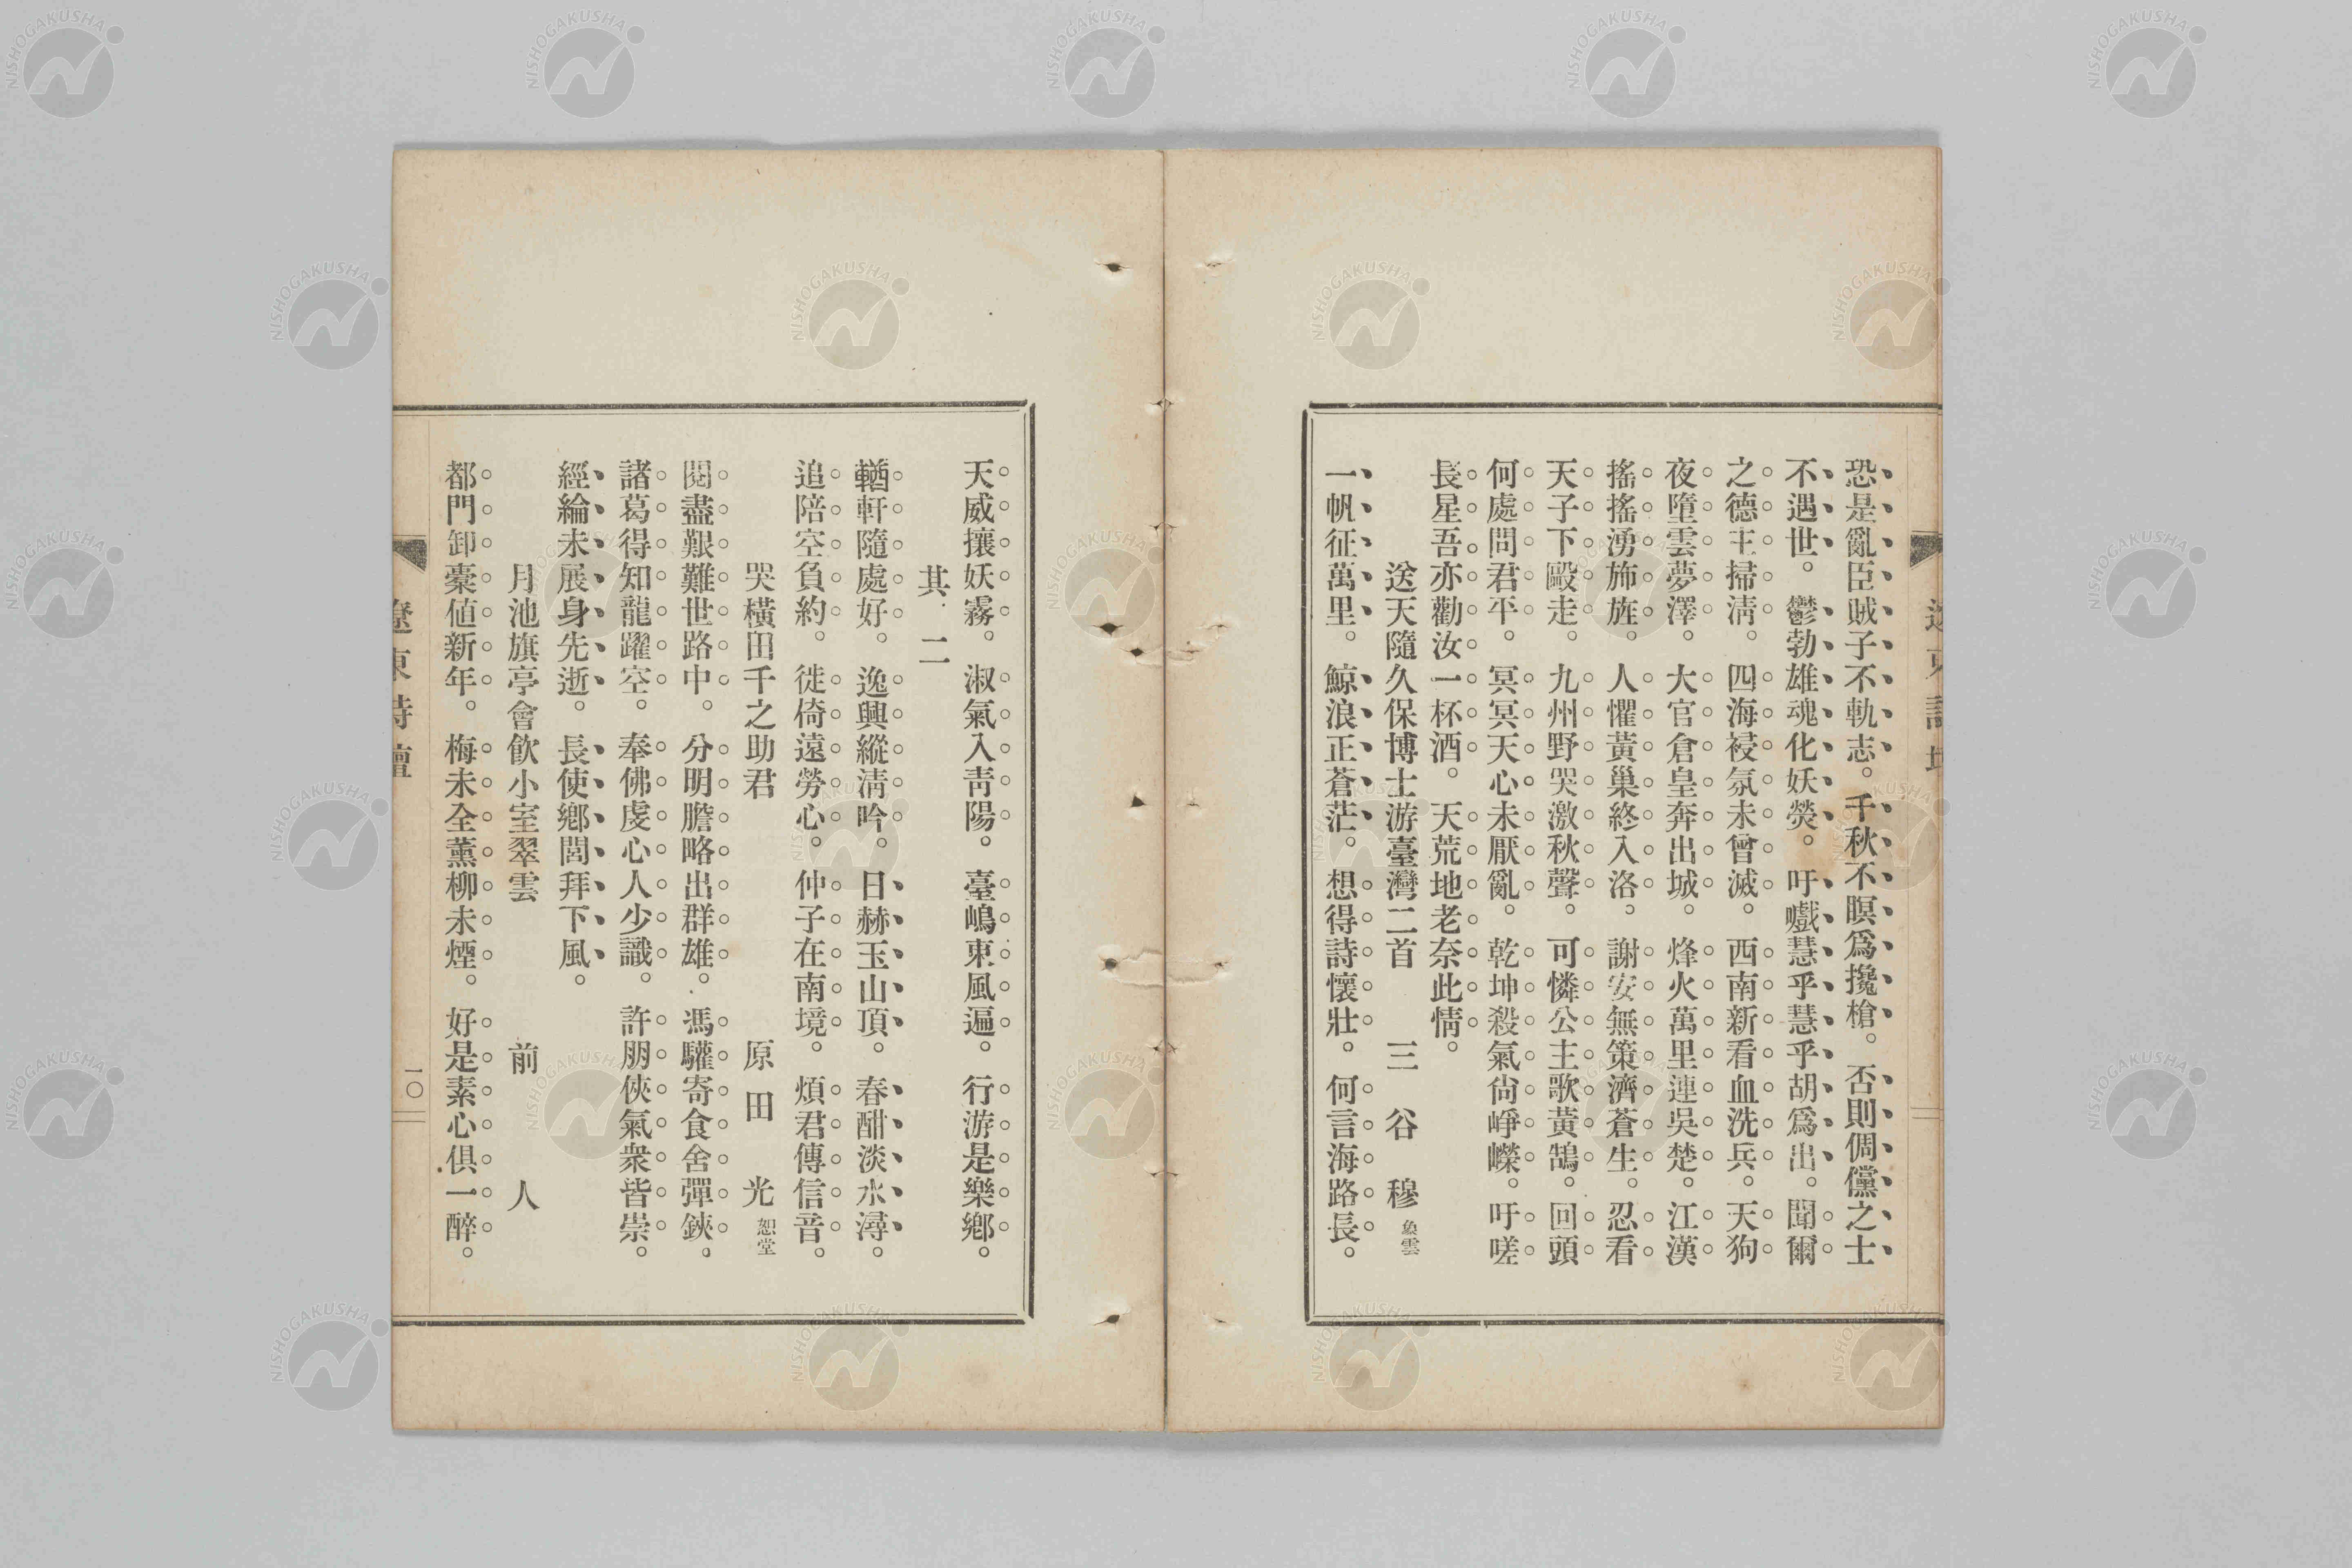 恐是亂臣賊子不軌志。千秋不瞑爲攙槍。否則倜儻之士
不遇世。鬱勃雄魂化妖熒。吁戲慧乎慧乎胡爲出。聞爾
之德主掃淸。四海祲氛未曾滅。西南新看血洗兵。天狗
夜墮雲夢澤。大官倉皇奔出城。烽火萬里連吳楚。江漢
搖搖湧斾旌。人懼黃巢終入洛。謝安無策濟蒼生。忍看
天子下毆走。九州野哭激秋聲。可憐公主歌黃鵠。回頭
何處問君平。冥冥天心未厭亂。乾坤殺氣尙崢嶸。吁嗟
長星吾亦勸汝一杯酒。天荒地老奈此情。
送天隨久保博士游臺灣二首 三谷穆 象雲
一帆征萬里。鯨浪正蒼茫。想得詩懷壯。何言海路長。
天威攘妖霧。淑氣入靑陽。臺嶋東風遍。行游是樂鄕。
其二
輶軒隨處好。逸興縱淸吟。日赫玉山頂。春酣淡水潯。
追陪空負約。徙倚遠勞心。仲子在南境。煩君傳信音。
哭橫田千之助君 原田光 恕堂
閱盡艱難世路中。分明膽略出群雄。馮驩寄食舍彈鋏。
諸葛得知龍躍空。奉佛虔心人少識。許朋俠氣衆皆崇。
經綸未展身先逝。長使鄕閭拜下風。
月池旗亭會飮小室翠雲 前人
都門卸橐値新年。梅未全薰柳未煙。好是素心俱一醉。
遼東詩壇
一〇
NISHOGAKUSHA